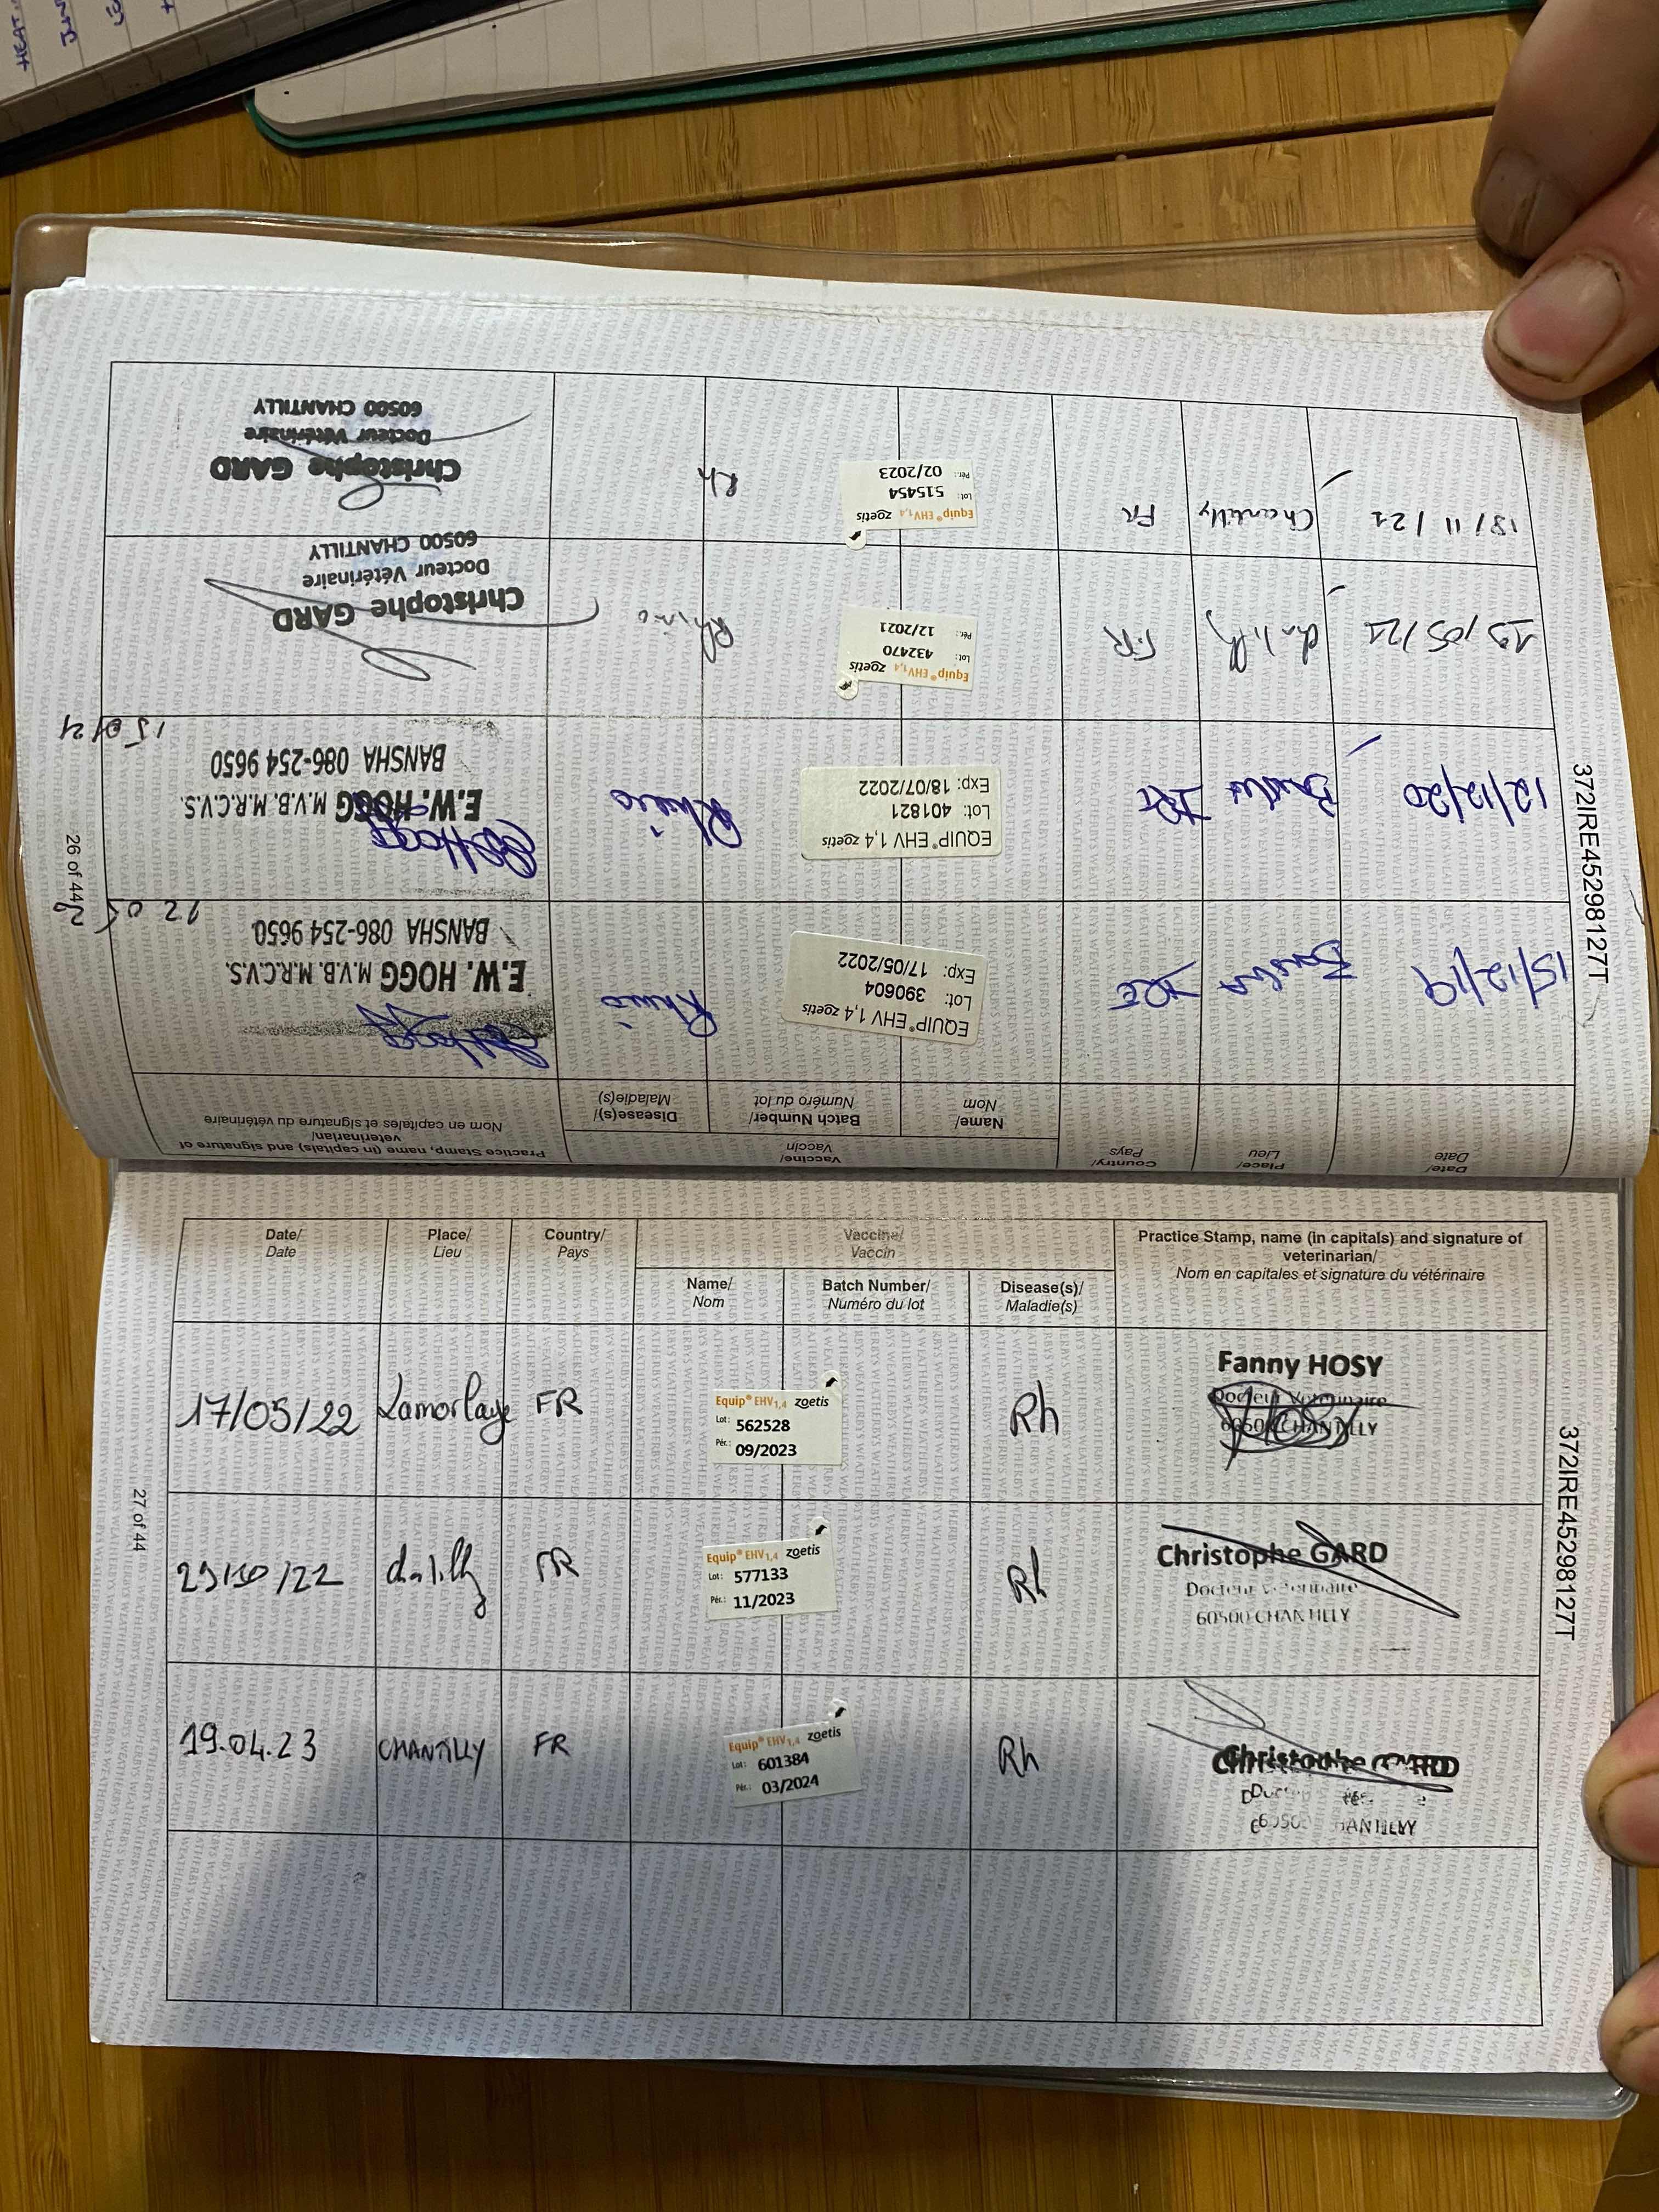 26 of 44
372IRE45298127T
Date/
Date
Place/
Lieu
Country/
Pays
Vaccine/
Vaccin
Name/
Nom
Batch Number/
Numéro du lot
Disease(s)/
Maladie(s)
Practice Stamp, name (in capitals) and signature of
veterinarian/
Nom en capitales et signature du vétérinaire
15/12/19
Bansha
IRE
EQUIP® EHV 1,4 zoetis
Lot: 390604
Exp: 17/05/2022
Rhino
E.W. HOGG M.V.B. M.R.C.V.S.
BANSHA 086-254 9650
12/12/20
Bansha
IRE
EQUIP® EHV 1,4 zoetis
Lot: 401821
Exp: 18/07/2022
Rhino
E.W. HOGG M.V.B. M.R.C.V.S.
BANSHA 086-254 9650
19/05/21
FR
Equip® EHV1,4 zoetis
Lot: 432470
Pér.: 12/2021
Rhino
Christophe GARD
Docteur Vétérinaire
60500 CHANTILLY
18/11/21
Chantilly
FR
Equip® EHV1,4 zoetis
Lot: 515454
Pér.: 02/2023
Rh
Christophe GARD
Docteur Vétérinaire
60500 CHANTILLY
27 of 44
372IRE45298127T
Date/
Date
Place/
Lieu
Country/
Pays
Vaccine/
Vaccin
Name/
Nom
Batch Number/
Numéro du lot
Disease(s)/
Maladie(s)
Practice Stamp, name (in capitals) and signature of
veterinarian/
Nom en capitales et signature du vétérinaire
17/05/22
Lamorlaye
FR
Equip® EHV1,4 zoetis
Lot: 562528
Pér.: 09/2023
Rh
Fanny HOSY
Docteur Vétérinaire
60500 CHANTILLY
FR
Equip® EHV1,4 zoetis
Lot: 577133
Pér.: 11/2023
Rh
Christophe GARD
Docteur Vétérinaire
60500 CHANTILLY
19.04.23
CHANTILLY
FR
Equip® EHV1,4 zoetis
Lot: 601384
Pér.: 03/2024
Rh
Christophe GARD